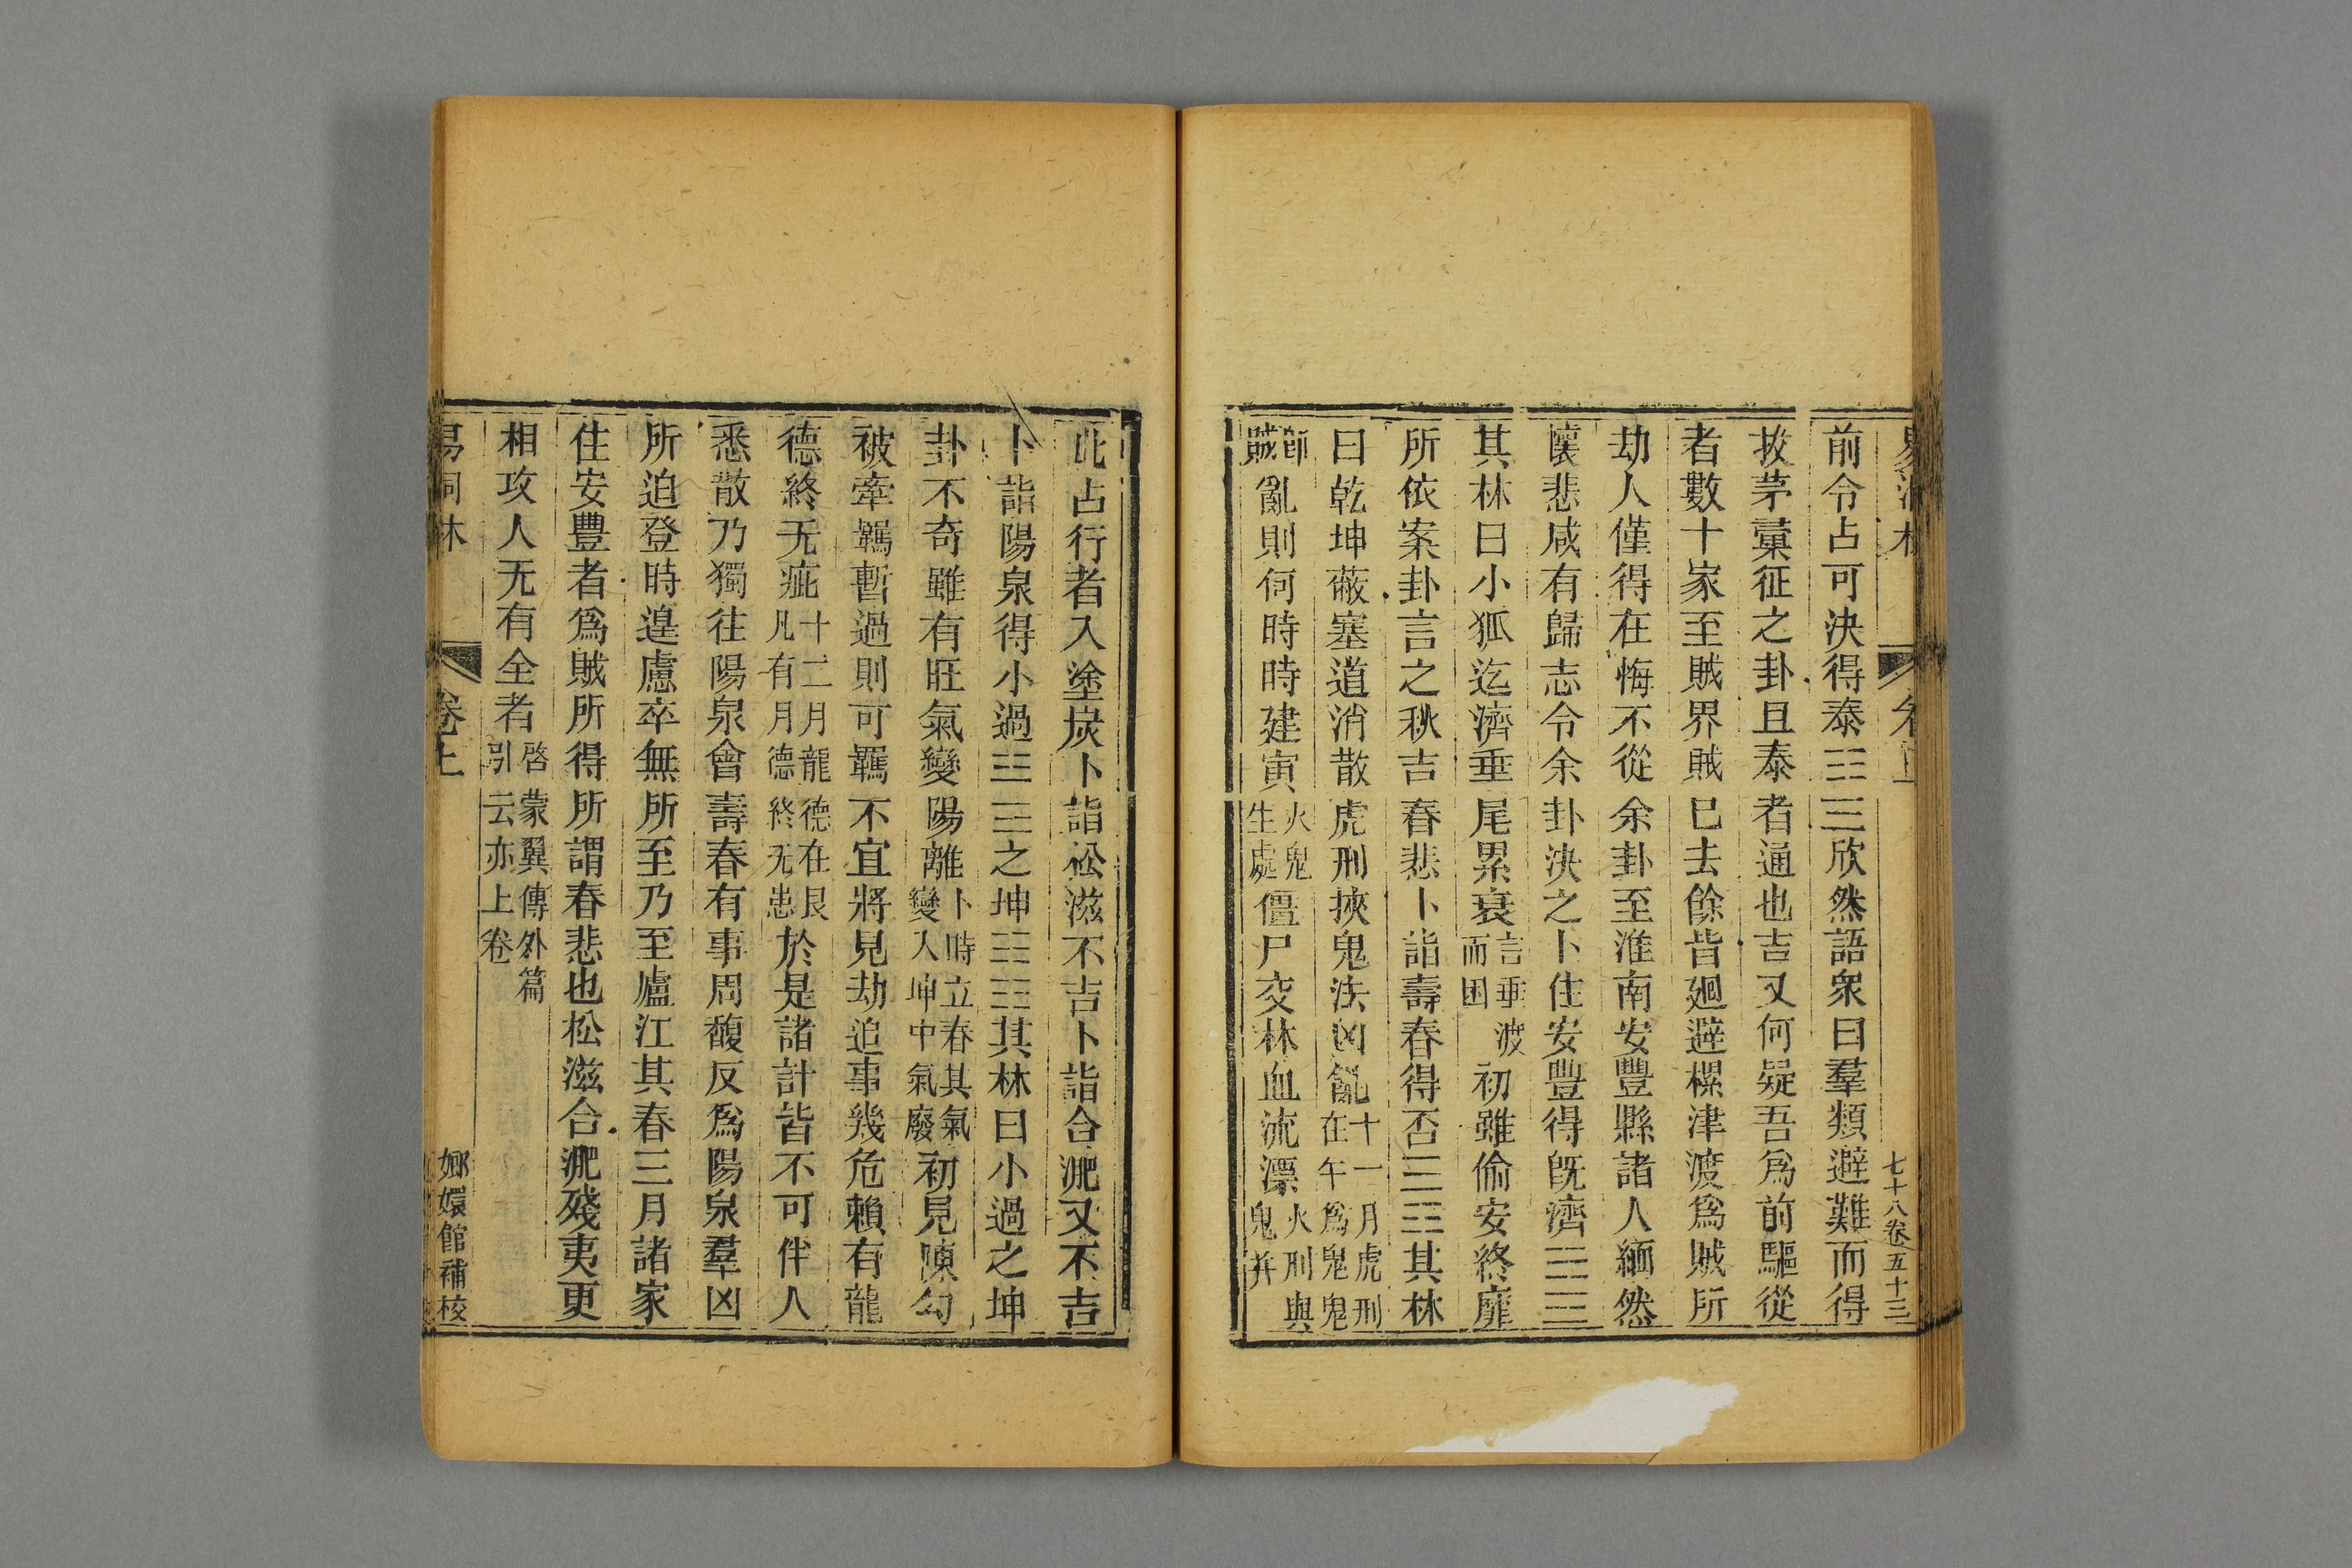 易洞林 卷上 七十八卷五十三
前令占可決得泰䷊欣然語衆曰羣類避難而得
拔茅彙征之卦且泰者通也吉又何疑吾爲前驅從
者數十家至賊界賊已去餘皆迴避樑津渡爲賊所
劫人僅得在悔不從余卦至淮南安豐縣諸人緬然
懷悲咸有歸志令余卦決之卜住安豐得旣濟䷾
其林曰小狐迄濟垂尾累衰言垂渡而困初雖偷安終靡
所依案卦言之秋吉春悲卜詣壽春得否䷋其林
曰乾坤蔽塞道消散虎刑挾鬼法凶亂十一月虎刑在午爲鬼鬼
卽賊亂則何時時建寅火鬼生處僵尸交林血流漂火刑與鬼并
此占行者入塗炭卜詣松滋不吉卜詣合淝又不吉
卜詣陽泉得小過䷽之坤䷁其林曰小過之坤
卦不奇雖有旺氣變陽離卜時立春其氣變入坤中氣廢初見陳勾
被牽羈暫過則可羈不宜將見劫追事幾危賴有龍
德終无疵十二月龍德在艮凡有月德終无患於是諸計皆不可伴人
悉散乃獨往陽泉會壽春有事周馥反爲陽泉羣凶
所迫登時遑慮卒無所至乃至廬江其春三月諸家
住安豐者爲賊所得所謂春悲也松滋合淝殘夷更
相攻人无有全者啓蒙翼傳外篇引云亦上卷
易洞林 卷上 嫏嬛館補校